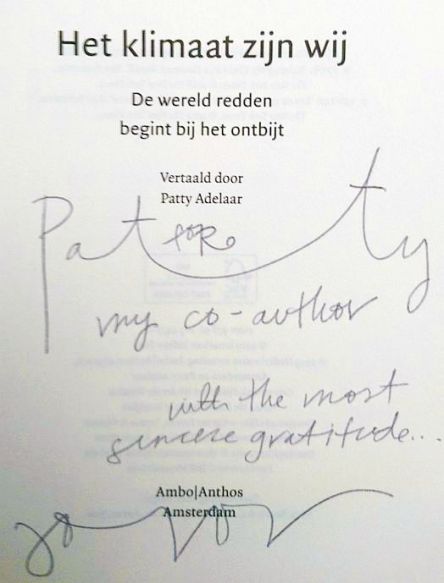 Het klimaat zijn wij
De wereld redden
begint bij het ontbijt
Vertaald door
Patty Adelaar
for
Patty
my co-author
with the most
sincere gratitude...
Ambo|Anthos
Amsterdam